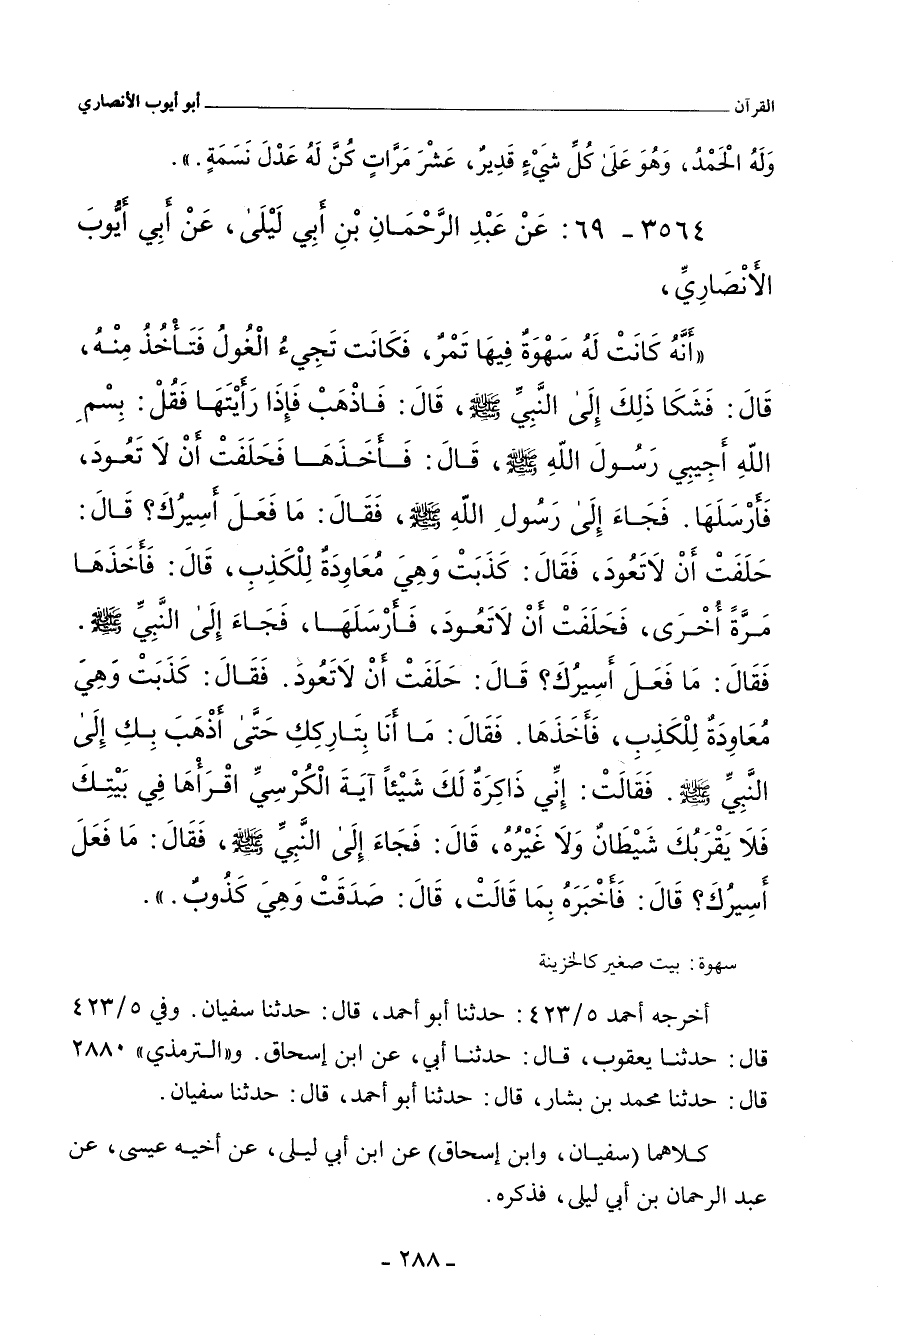 القرآن ــــــــــــــــــــــــــــ أبو أيوب الأنصاري
وَلَهُ الْحَمْدُ، وَهُوَ عَلَىٰ كُلِّ شَيْءٍ قَدِيرٌ، عَشْرَ مَرَّاتٍ كُنَّ لَهُ عَدْلَ نَسَمَةٍ.».
٣٥٦٤ ـ ٦٩: عَنْ عَبْدِ الرَّحْمَـانِ بْنِ أَبِي لَيْلَىٰ، عَنْ أَبِي أَيُّوبَ
الأَنْصَارِيِّ،
«أَنَّهُ كَانَتْ لَهُ سَهْوَةٌ فِيهَا تَمْرٌ، فَكَانَت تَجِيءُ الْغُولُ فَتَـأْخُذُ مِنْـهُ،
قَالَ: فَشَكَا ذَلِكَ إِلَىٰ النَّبِيِّ ﷺ، قَالَ: فَـاذْهَبْ فَإِذَا رَأَيْتَهَـا فَقُلْ: بِسْمِ
اللهِ أَجِيبِي رَسُـولَ اللهِ ﷺ، قَـالَ: فَـأَخَـذَهَـا فَحَلَفَتْ أَنْ لاَ تَعُـودَ،
فَأَرْسَلَهَا. فَجَـاءَ إِلَىٰ رَسُولِ اللهِ ﷺ، فَقَـالَ: مَا فَعَـلَ أَسِيرُكَ؟ قَـالَ:
حَلَفَتْ أَنْ لاَتَعُودَ، فَقَالَ: كَذَبَتْ وَهِيَ مُعَاوِدَةٌ لِلْكَذِبِ، قَالَ: فَأَخَذَهَـا
مَـرَّةً أُخْـرَى، فَحَلَفَتْ أَنْ لاَتَعُـودَ، فَـأَرْسَلَهَـا، فَجَـاءَ إِلَىٰ النَّبِيِّ ﷺ.
فَقَالَ: مَا فَعَـلَ أَسِيرُكَ؟ قَـالَ: حَلَفَتْ أَنْ لاَتَعُودَ. فَقَـالَ: كَذَبَتْ وَهِيَ
مُعَاوِدَةٌ لِلْكَذِبِ، فَأَخَذَهَا. فَقَالَ: مَـا أَنَا بِتَـارِكِكِ حَتَّىٰ أَذْهَبَ بِـكِ إِلَىٰ
النَّبِيِّ ﷺ. فَقَالَتْ: إِنِّي ذَاكِرَةٌ لَكَ شَيْئاً آيَـةَ الْكُرْسِيِّ اقْـرَأْهَا فِي بَيْتِـكَ
فَلاَ يَقْرَبُكَ شَيْطَانٌ وَلاَ غَيْرُهُ، قَالَ: فَجَاءَ إِلَىٰ النَّبِيِّ ﷺ، فَقَالَ: مَا فَعَلَ
أَسِيرُكَ؟ قَالَ: فَأَخْبَرَهُ بِمَا قَالَتْ، قَالَ: صَدَقَتْ وَهِيَ كَذُوبٌ.».
سهوة: بيت صغير كالخزينة
أخرجه أحمد ٤٢٣/٥: حدثنا أبو أحمد، قال: حدثنا سفيان. وفي ٤٢٣/٥
قال: حدثنـا يعقوب، قـال: حدثنـا أبي، عن ابن إسحاق. و«الـترمذي» ٢٨٨٠
قال: حدثنا محمد بن بشار، قال: حدثنا أبو أحمد، قال: حدثنا سفيان.
كـلاهما (سفيـان، وابن إسحاق) عن ابن أبي ليـلى، عن أخيـه عيسى، عن
عبد الرحمان بن أبي ليلى، فذكره.
ـ ٢٨٨ ـ